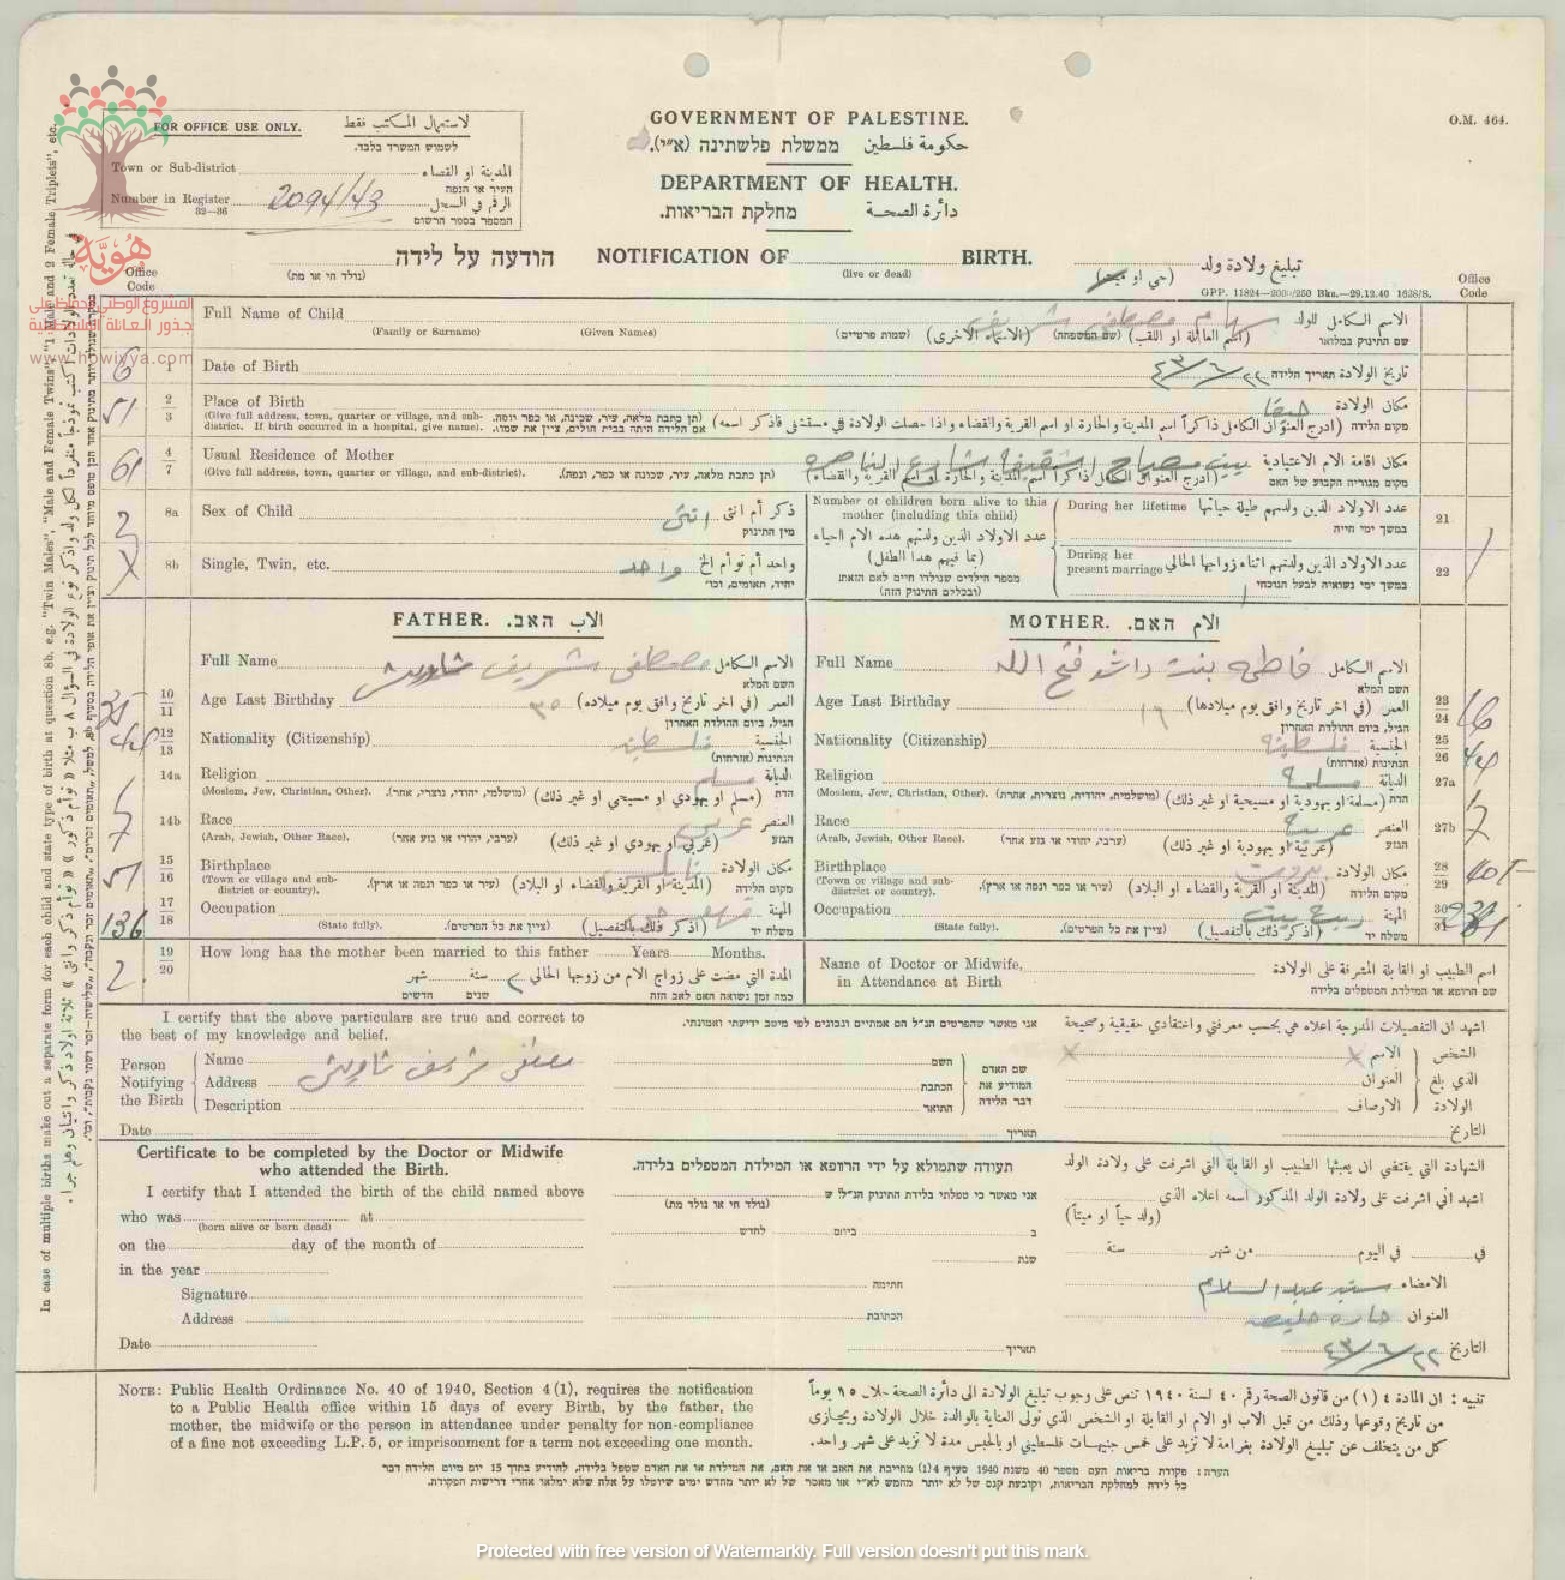 GOVERNMENT OF PALESTINE.
حكومة فلسطين ממשלת פלשתינה (א״י).
DEPARTMENT OF HEALTH.
دائرة الصحة מחלקת הבריאות.
O.M. 464.
FOR OFFICE USE ONLY. لاستعمال المكتب فقط
לשמוש המשרד בלבד.
Town or Sub-district المدينة او القضاء
העיר או הנפה
Number in Register 2094/43 الرقم في السجل
32—36 המספר בספר הרשום
הודעה על לידה NOTIFICATION OF BIRTH. تبليغ ولادة ولد
(נולד חי או מת) (live or dead) (حي او ميتا)
GPP. 11824—200/250 Bks.—29.12.40 1638/S.
Office Code
Office Code
هُوِيَّة
المشروع الوطني للحفاظ على
جذور العائلة الفلسطينية
www.howiyya.com
Full Name of Child مصطفى شريف الاسم الكامل للولد
(Family or Surname) (Given Names) (שמות פרטיים) (الاسماء الاخرى) (שם המשפחה) (اسم العائلة او اللقب) שם התינוק במלואו
6 1 Date of Birth ٢٢/٦/٤٣ تاريخ الولادة תאריך הלידה
51 2 3 Place of Birth حيفا مكان الولادة
(Give full address, town, quarter or village, and sub- (תן כתבת מלאה, עיר, שכונה, או כפר ונפה.
district. If birth occurred in a hospital, give name). אם הלידה היתה בבית חולים, ציין את שמו). (ادرج العنوان الكامل ذاكراً اسم المدينة والحارة او اسم القرية والقضاء واذا حصلت الولادة في مستشفى فاذكر اسمه) מקום הלידה
61 4 7 Usual Residence of Mother شارع الناصره مكان اقامة الام الاعتيادية
(Give full address, town, quarter or village, and sub-district). (תן כתבת מלאה, עיר, שכונה או כפר, ונפה). (ادرج العنوان الكامل ذاكرا اسم المدينة والحارة او اسم القرية والقضاء) מקום מגוריה הקבוע של האם
2 8a Sex of Child انثى ذكر أم انثى
מין התינוק
8b Single, Twin, etc. واحد واحد أم توأم الخ
יחיד, תאומים, וכו׳
Number of children born alive to this mother (including this child)
عدد الاولاد الذين ولدتهم هذه الام احياء
(بما فيهم هذا الطفل)
מספר הילדים שנולדו חיים לאם הזאת
(ובכללם התינוק הזה)
During her lifetime عدد الاولاد الذين ولدتهم طيلة حياتها 21
במשך ימי חייה
During her present marriage عدد الاولاد الذين ولدتهم اثناء زواجها الحالي 22
במשך ימי נשואיה לבעל הנוכחי
FATHER. האב. الاب
Full Name مصطفى شريف شاويش الاسم الكامل
השם המלא
35 10 11 Age Last Birthday ٣٥ العمر (في اخر تاريخ وافق يوم ميلاده)
הגיל, ביום ההולדת האחרון
44 12 13 Nationality (Citizenship) فلسطيني الجنسية
הנתינות (אזרחות)
14a Religion مسلم الديانة
(Moslem, Jew, Christian, Other). (מושלמי, יהודי, נוצרי, אחר). (مسلم او يهودي او مسيحي او غير ذلك) הדת
14b Race عربي العنصر
(Arab, Jewish, Other Race). (ערבי, יהודי או גזע אחר) (عربي او يهودي او غير ذلك) הגזע
51 15 16 Birthplace نابلس مكان الولادة
(Town or village and sub-district or country). (עיר או כפר ונפה או ארץ). (المدينة او القرية والقضاء او البلاد) מקום הלידה
136 17 18 Occupation المهنة
(State fully). (ציין את כל הפרטים). (اذكر ذلك بالتفصيل) משלח יד
2. 19 20 How long has the mother been married to this father Years Months.
المدة التي مضت على زواج الام من زوجها الحالي ٢ سنة شهر
כמה זמן נשואה האם לאב הזה שנים חדשים
MOTHER. האם. الام
Full Name فاطمه بنت فتح الله الاسم الكامل
השם המלא
Age Last Birthday ١٦ العمر (في اخر تاريخ وافق يوم ميلادها) 23 24 16
הגיל, ביום ההולדת האחרון
Nationality (Citizenship) فلسطينيه الجنسية 25 26 44
הנתינות (אזרחות)
Religion مسلمة الديانة 27a
(Moslem, Jew, Christian, Other). (מושלמית, יהודית, נוצרית, אחרת) (مسلمة او يهودية او مسيحية او غير ذلك) הדת
Race عربية العنصر 27b
(Arab, Jewish, Other Race). (ערבי, יהודי או גזע אחר) (عربية او يهودية او غير ذلك) הגזע
Birthplace بيروت مكان الولادة 28 29 405
(Town or village and sub-district or country). (עיר או כפר ונפה או ארץ). (المدينة او القرية والقضاء او البلاد) מקום הלידה
Occupation ربة بيت المهنة 30 31
(State fully). (ציין את כל הפרטים). (اذكر ذلك بالتفصيل) משלח יד
Name of Doctor or Midwife, in Attendance at Birth اسم الطبيب او القابلة المشرفة على الولادة
שם הרופא או המילדת המטפלים בלידה
I certify that the above particulars are true and correct to the best of my knowledge and belief.
אני מאשר שהפרטים הנ״ל הם אמתיים ונכונים לפי מיטב ידיעתי ואמונתי.
اشهد ان التفصيلات المدرجة اعلاه هي بحسب معرفتي واعتقادي حقيقية وصحيحة
Person Notifying the Birth
Name السم الاسم X X
Address مصطفى شريف شاويش הכתבת العنوان
Description התיאור الاوصاف
שם האדם המודיע את דבר הלידה
الشخص الذي بلغ الولادة
Date תאריך التاريخ
Certificate to be completed by the Doctor or Midwife who attended the Birth.
תעודה שתמולא על ידי הרופא או המילדת המטפלים בלידה.
الشهادة التي يقتضي ان يعبئها الطبيب او القابلة التي اشرفت على ولادة الولد
I certify that I attended the birth of the child named above
אני מאשר כי טפלתי בלידת התינוק הנ״ל ש
اشهد اني اشرفت على ولادة الولد المذكور اسمه اعلاه الذي
who was at (נולד חי או נולד מת) (ولد حياً او ميتاً)
(born alive or born dead)
on the day of the month of ב ביום לחדש في في اليوم من شهر سنة
in the year שנת
Signature חתימה الامضاء عبد السلام
Address הכתובת العنوان حارة
Date תאריך التاريخ ٢٢/٦/٤٣
NOTE: Public Health Ordinance No. 40 of 1940, Section 4 (1), requires the notification
to a Public Health office within 15 days of every Birth, by the father, the
mother, the midwife or the person in attendance under penalty for non-compliance
of a fine not exceeding L.P. 5, or imprisonment for a term not exceeding one month.
تنبيه : ان المادة ٤ (١) من قانون الصحة رقم ٤٠ لسنة ١٩٤٠ تنص على وجوب تبليغ الولادة الى دائرة الصحة خلال ١٥ يوماً
من تاريخ وقوعها وذلك من قبل الاب او الام او القابلة او الشخص الذي تولى العناية بالوالدة خلال الولادة ويجازى
كل من يتخلف عن تبليغ الولادة بغرامة لا تزيد على خمس جنيهات فلسطيني او بالحبس مدة لا تزيد على شهر واحد.
הערה: פקודת בריאות העם מספר 40 משנת 1940 סעיף 4(1) מחייבת את האב או את האם, את המילדת או את האדם שטפל בלידה, להודיע בתוך 15 יום מיום הלידה דבר
כל לידה למחלקת הבריאות, וקובעת קנס של לא יותר מחמש לא״י או מאסר של לא יותר מחדש ימים שיוטלו על אלה שלא ימלאו אחרי דרישות הפקודה.
In case of multiple births make out a separate form for each child and state type of birth at question 8b, e.g. "Twin Males", "Male and Female Twins", "1 Male and 2 Female Triplets", etc.
Protected with free version of Watermarkly. Full version doesn't put this mark.